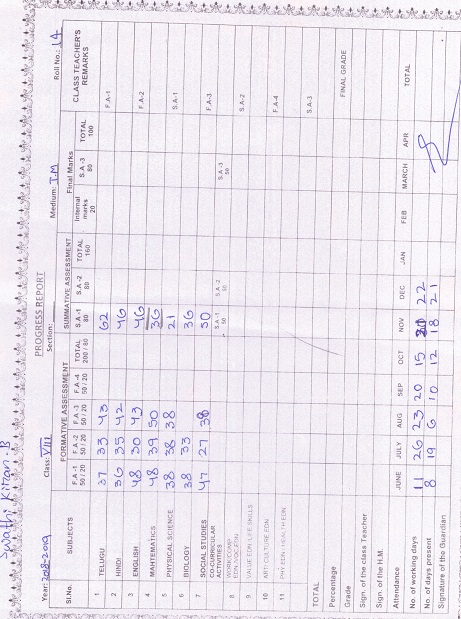 Swathi Kiran. B
PROGRESS REPORT
Year: 2018-2019 Class: VIII Section: Medium: T.M Roll No.: 14
Sl.No. SUBJECTS FORMATIVE ASSESSMENT SUMMATIVE ASSESSMENT Final Marks CLASS TEACHER'S REMARKS
F.A -1 50/20 F.A -2 50/20 F.A -3 50/20 F.A -4 50/20 TOTAL 200/80 S.A -1 80 S.A -2 80 TOTAL 160 Internal marks 20 S.A -3 80 TOTAL 100
1 TELUGU 37 33 43 62 F.A-1
2 HINDI 36 35 42 46
3 ENGLISH 48 30 43 46 F.A-2
4 MAHTEMATICS 48 39 50 36
5 PHYSICAL SCIENCE 38 38 38 21 S.A-1
6 BIOLOGY 38 33 36
7 SOCIAL STUDIES 47 27 38 50 F.A-3
CO-CURRICULAR ACTIVITIES S.A -1 50 S.A -2 50 S.A -3 50
8 WORK/COMP EDN/VOC EDN
9 VALUE EDN LIFE SKILLS S.A-2
10 ART/ CULTURE EDN
11 PHY EDN / HEALTH EDN F.A-4
TOTAL
Percentage S.A-3
Grade
Sign. of the class Teacher FINAL GRADE
Sign. of the H.M.
Attendance JUNE JULY AUG SEP OCT NOV DEC JAN FEB MARCH APR TOTAL
No. of working days 11 26 23 20 15 22
No. of days present 8 19 6 10 12 18 21
Signature of the Guardian